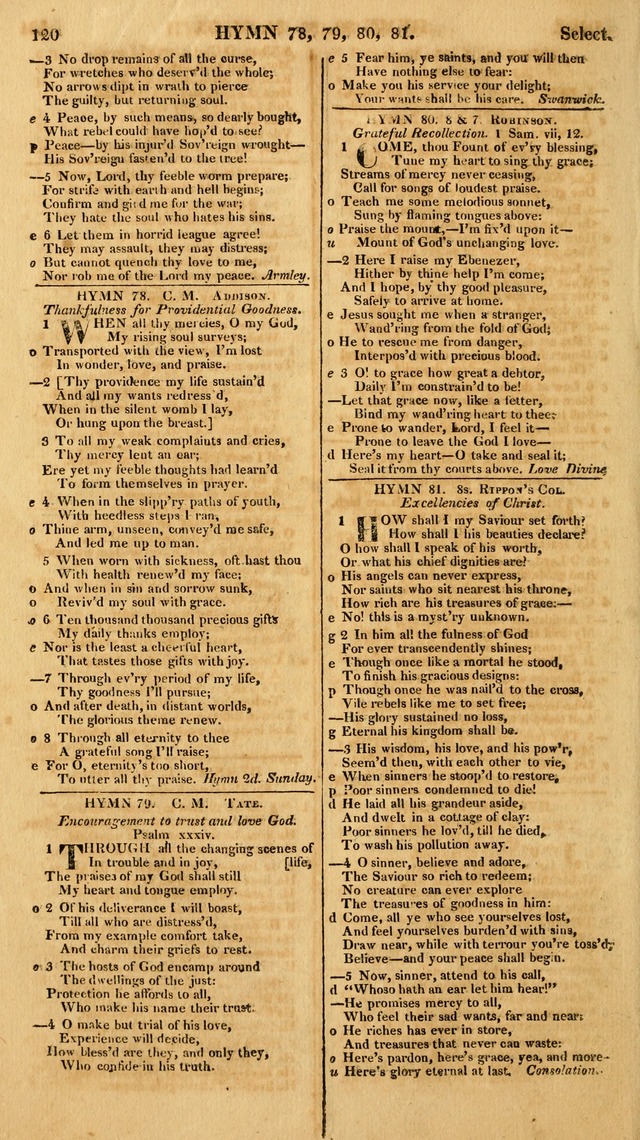 120 HYMN 78, 79, 80, 81. Select.
—3 No drop remains of all the curse,
For wretches who deserv'd the whole;
No arrows dipt in wrath to pierce
The guilty, but returning soul.
e 4 Peace, by such means, so dearly bought,
What rebel could have hop'd to see?
p Peace—by his injur'd Sov'reign wrought—
His Sov'reign fasten'd to the tree!
—5 Now, Lord, thy feeble worm prepare;
For strife with earth and hell begins;
Confirm and gird me for the war;
They hate the soul who hates his sins.
e 6 Let them in horrid league agree!
They may assault, they may distress;
o But cannot quench thy love to me,
Nor rob me of the Lord my peace. Armley.
HYMN 78. C. M. Addison.
Thankfulness for Providential Goodness.
1 WHEN all thy mercies, O my God,
My rising soul surveys;
o Transported with the view, I'm lost
In wonder, love, and praise.
—2 [Thy providence my life sustain'd
And all my wants redress'd,
When in the silent womb I lay,
Or hung upon the breast.]
3 To all my weak complaints and cries,
Thy mercy lent an ear;
Ere yet my feeble thoughts had learn'd
To form themselves in prayer.
e 4 When in the slipp'ry paths of youth,
With heedless steps I ran,
o Thine arm, unseen, convey'd me safe,
And led me up to man.
5 When worn with sickness, oft hast thou
With health renew'd my face;
o And when in sin and sorrow sunk,
o Reviv'd my soul with grace.
o 6 Ten thousand thousand precious gifts
My daily thanks employ;
e Nor is the least a cheerful heart,
That tastes those gifts with joy.
—7 Through ev'ry period of my life,
Thy goodness I'll pursue;
o And after death, in distant worlds,
The glorious theme renew.
o 8 Through all eternity to thee
A grateful song I'll raise;
e For O, eternity's too short,
To utter all thy praise. Hymn 2d. Sunday.
HYMN 79. C. M. Tate.
Encouragement to trust and love God.
Psalm xxxiv.
1 THROUGH all the changing scenes of
In trouble and in joy, [life,
The praises of my God shall still
My heart and tongue employ.
o 2 Of his deliverance I will boast,
Till all who are distress'd,
From my example comfort take,
And charm their griefs to rest.
o 3 The hosts of God encamp around
The dwellings of the just:
Protection he affords to all,
Who make his name their trust.
—4 O make but trial of his love,
Experience will decide,
How bless'd are they, and only they,
Who confide in his truth.
e 5 Fear him, ye saints, and you will then
Have nothing else to fear:
o Make you his service your delight;
Your wants shall be his care. Swanwick.
HYMN 80. 8 & 7. Robinson.
Grateful Recollection. 1 Sam. vii, 12.
1 COME, thou Fount of ev'ry blessing,
Tune my heart to sing thy grace;
Streams of mercy never ceasing,
Call for songs of loudest praise.
o Teach me some melodious sonnet,
Sung by flaming tongues above:
o Praise the mount,—I'm fix'd upon it—
u Mount of God's unchanging love.
—2 Here I raise my Ebenezer,
Hither by thine help I'm come;
And I hope, by thy good pleasure,
Safely to arrive at home.
e Jesus sought me when a stranger,
Wand'ring from the fold of God;
o He to rescue me from danger,
Interpos'd with precious blood.
e 3 O! to grace how great a debtor,
Daily I'm constrain'd to be!
—Let that grace now, like a fetter,
Bind my wand'ring heart to thee:
e Prone to wander, Lord, I feel it—
Prone to leave the God I love—
d Here's my heart—O take and seal it;
Seal it from thy courts above. Love Divine
HYMN 81. 8s. Rippon's Col.
Excellencies of Christ.
1 HOW shall I my Saviour set forth?
How shall I his beauties declare?
O how shall I speak of his worth,
Or what his chief dignities are?
o His angels can never express,
Nor saints who sit nearest his throne,
How rich are his treasures of grace:—
e No! this is a myst'ry unknown.
g 2 In him all the fulness of God
For ever transcendently shines;
e Though once like a mortal he stood,
To finish his gracious designs:
p Though once he was nail'd to the cross,
Vile rebels like me to set free;
—His glory sustained no loss,
g Eternal his kingdom shall be.
—3 His wisdom, his love, and his pow'r,
Seem'd then, with each other to vie,
e When sinners he stoop'd to restore,
p Poor sinners condemned to die!
d He laid all his grandeur aside,
And dwelt in a cottage of clay:
Poor sinners he lov'd, till he died,
To wash his pollution away.
—4 O sinner, believe and adore,
The Saviour so rich to redeem;
No creature can ever explore
The treasures of goodness in him:
d Come, all ye who see yourselves lost,
And feel yourselves burden'd with sins,
Draw near, while with terrour you're toss'd;
Believe—and your peace shall begin.
—5 Now, sinner, attend to his call,
d "Whoso hath an ear let him hear!"
—He promises mercy to all,
Who feel their sad wants, far and near:
o He riches has ever in store,
And treasures that never can waste:
o Here's pardon, here's grace, yea, and more—
u Here's glory eternal at last. Consolation.